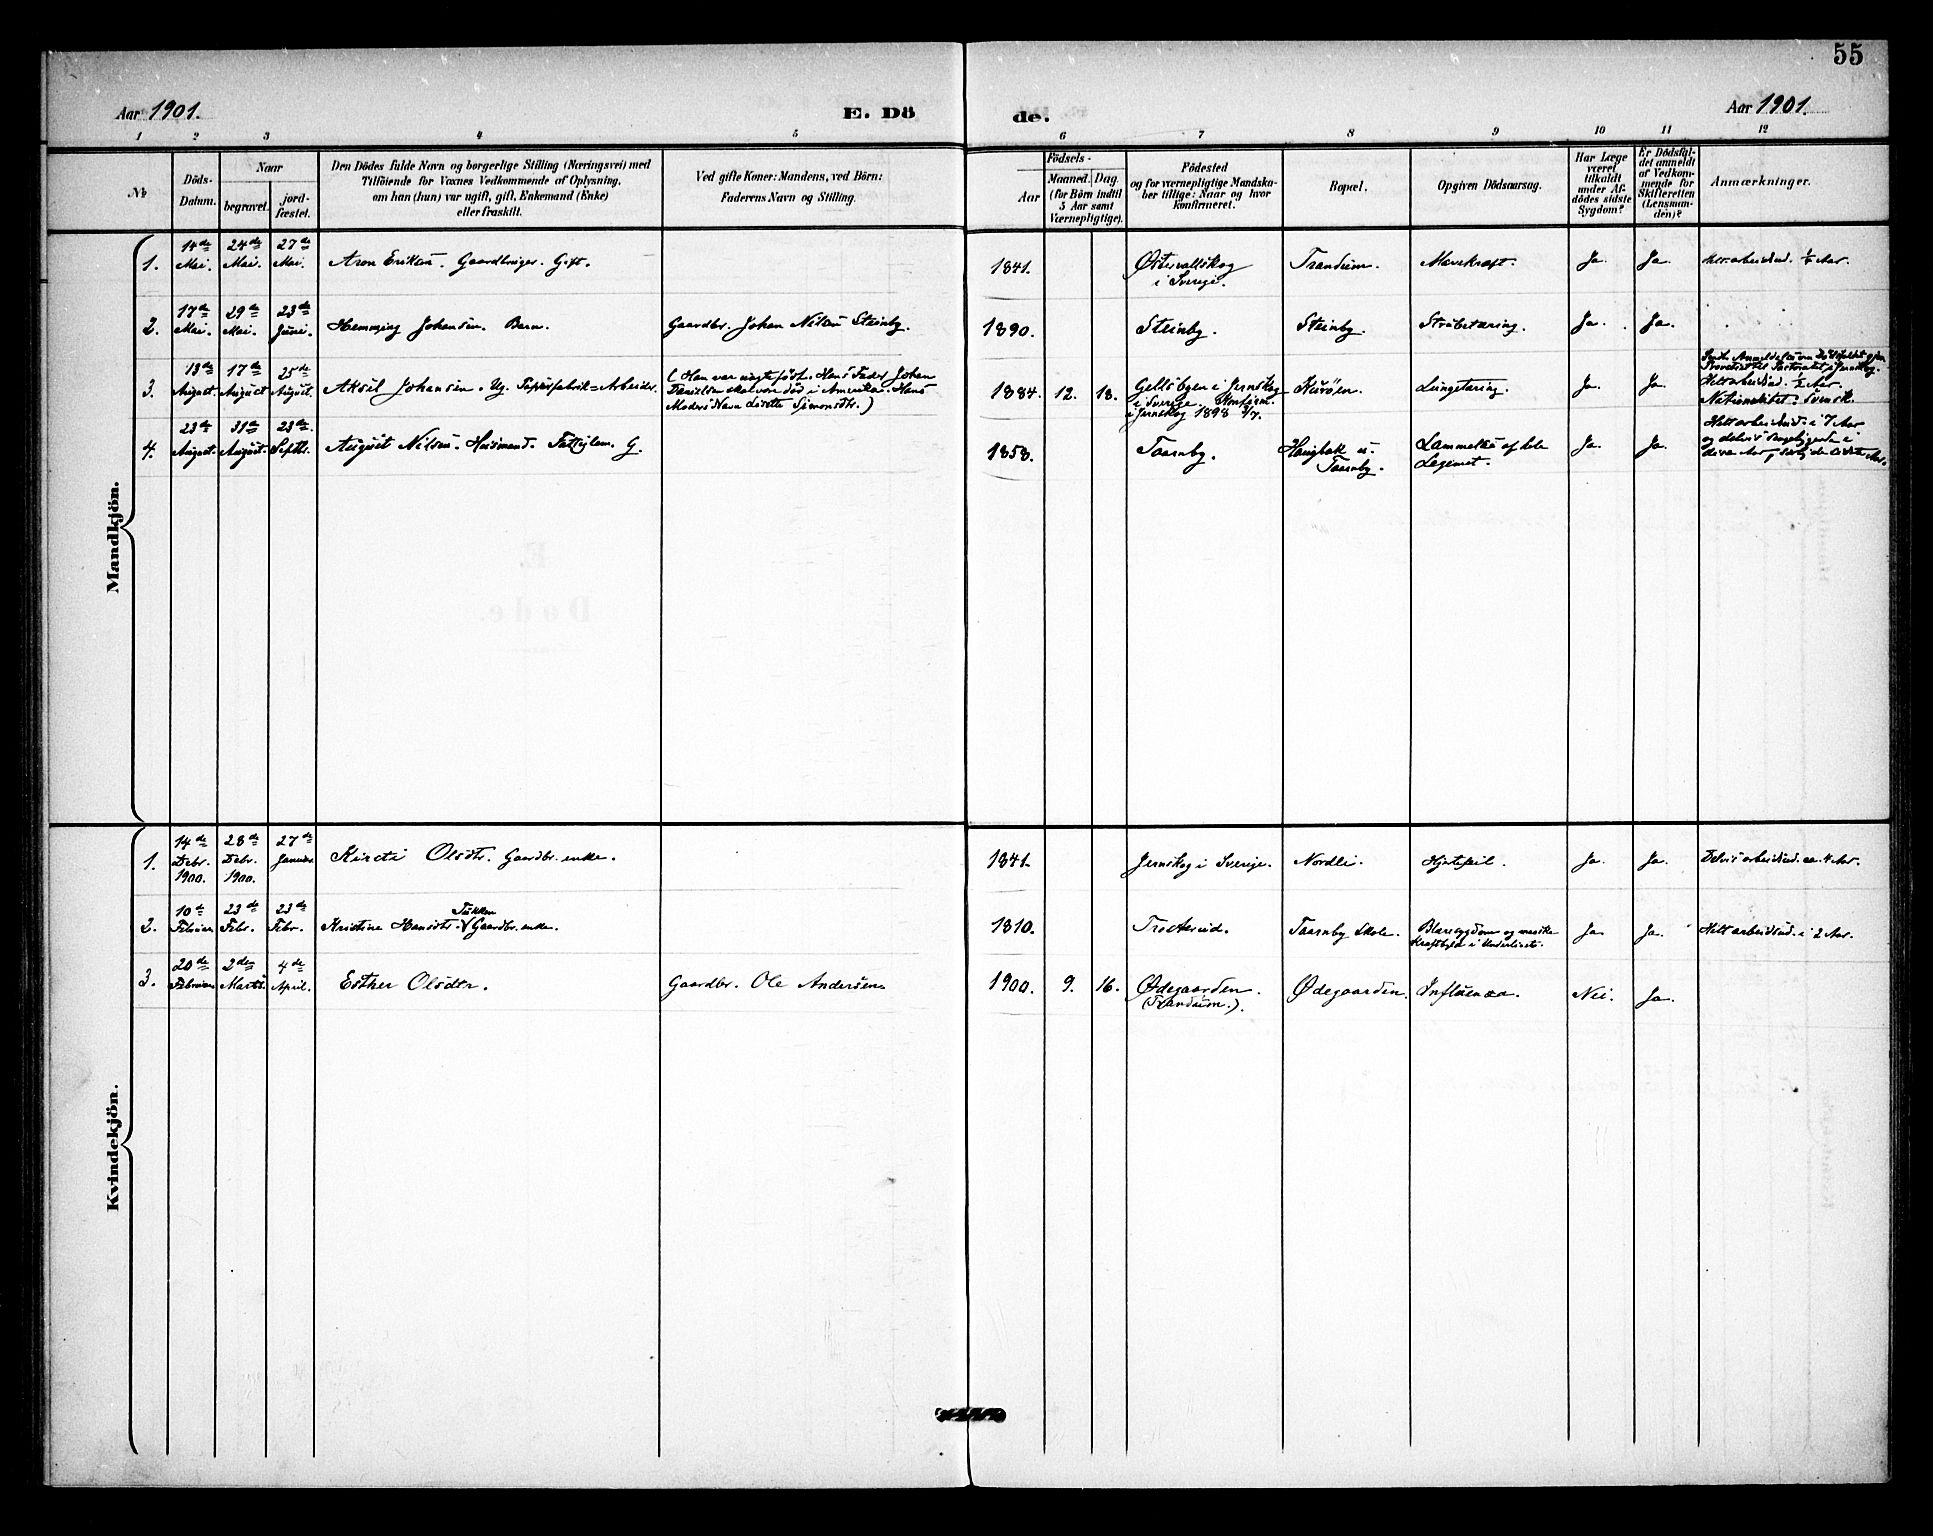 55
Aar 1901.
E. Dö
de.
Aar 1901.
1 2 3 4 5 6 7 8 9 10 11 12
№
Döds-
Datum.
Naar
begravet.
jord-
fæstet.
Den Dödes fulde Navn og borgerlige Stilling (Næringsvei) med
Tilföiende for Voxnes Vedkommende af Oplysning,
om han (hun) var ugift, gift, Enkemand (Enke)
eller fraskilt.
Ved gifte Koner: Mandens, ved Börn:
Faderens Navn og Stilling.
Födsels-
Aar
Maaned. Dag.
(for Börn indtil
5 Aar samt
Værnepligtige).
Födested
og for værnepligtige Mandska-
ber tillige: Naar og hvor
konfirmeret.
Bopæl.
Opgiven Dödsaarsag.
Har Læge
været
tilkaldt
under Af-
dödes sidste
Sygdom?
Er Dödsfal-
det anmeldt
af Vedkom-
mende for
Skifteretten
(Lensman-
den)?
Anmærkninger.
Mandkjön.
1.
14de
Mai.
24de
Mai.
27de
Mai.
Aron Eriksen. Gaardbruger. Gift.
1841.
Östervallskog
i Sverige.
Trandum.
Mavekræft.
Ja.
Ja.
arbeidsud. ½ Aar.
2.
17de
Mai.
29de
Mai.
23de
Juni.
Hemming Johansen. Barn.
Gaardbr. Johan Nilsen Steinby.
1890.
Steinby.
Steinby.
Strubetæring.
Ja.
Ja.
3.
13de
August.
17de
August
25de
August.
Aksel Johansen. Ug. Papirfabrik=Arbeider.
(Han var uægte föd. Hans Fader Johan
Danielsen skal være död i Amerika. Hans
Moders Navn Lisette Simonsdtr.)
1884. 12. 13.
i Jernskog
i Sverige. Konfirm.
i Jernskog 1898
Lungetæring.
Ja.
Ja.
Helt arbeidsud. ½ Aar.
Nationalitet: svensk.
4.
23de
August.
31te
August.
23de
Septbr.
August Nilsen. Husmand. Fattiglem. G.
1853.
Taarnby.
Haugbak u.
Taarnby.
Lammelse af hele
Legemet.
Ja.
Ja.
Helt arbeidsud. i 7 Aar
og delvis
Kvindekjön.
1.
14de
Debr.
1900.
28de
Debr.
1900.
27de
Januar
Kirsti Olsdtr. Gaardbr. enke.
1841.
Jernskog i Sverige.
Nordli.
Hjertefeil.
Ja.
Ja.
Delvis arbeidsud. ca. 4 Aar.
2.
10de
Februar
23de
Febr.
23de
Febr.
Kristine Hansdtr. Gaardbr. enke.
1810.
Taarnby Skole.
Blæresygdom og maaske
i Underlivet.
Ja.
Ja.
Helt arbeidsud. i 2 Aar.
3.
20de
Februar
2den
Marts.
4de
April.
Esther Olsdtr.
Gaardbr. Ole Andersen
1900. 9. 16.
Ødegaarden.
(Trandum.).
Ødegaarden.
Influenza.
Nei.
Ja.